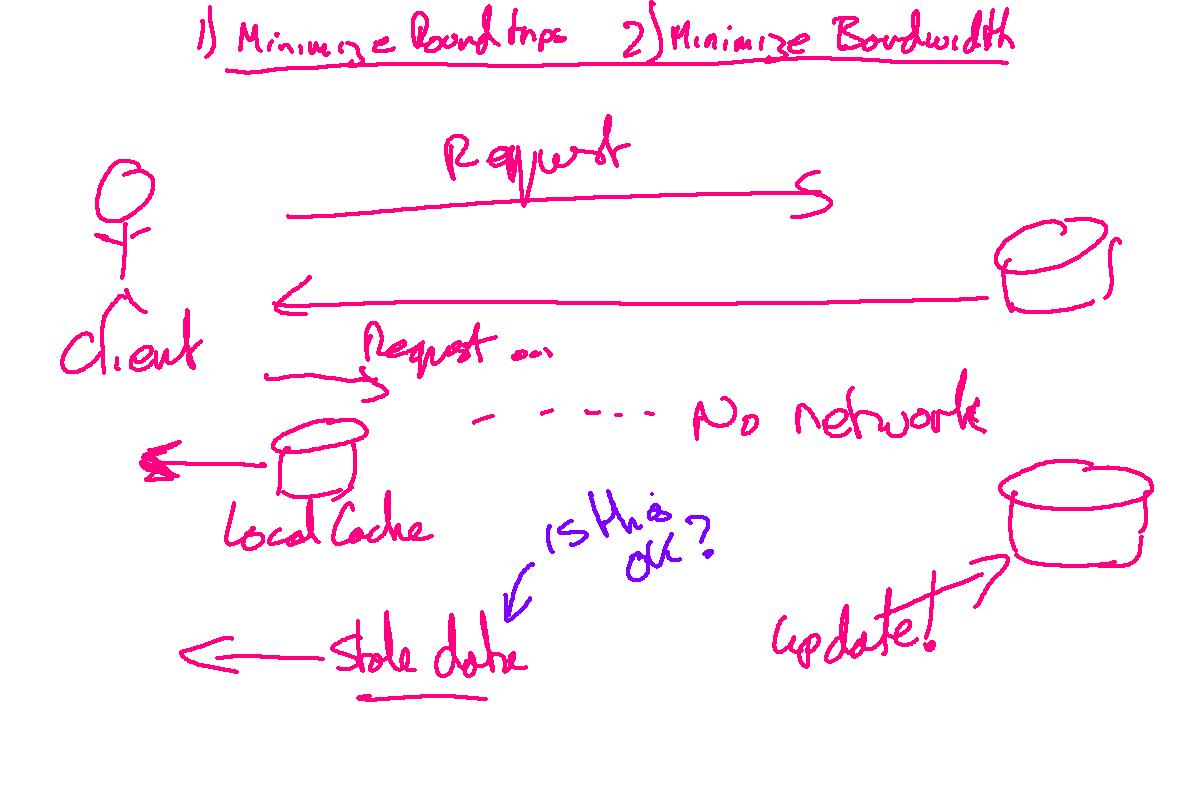 1) Minimize Roundtrips 2) Minimize Bandwidth
Request
Client
Request ...
No network
Local Cache
is this
ok?
update!
Stale data